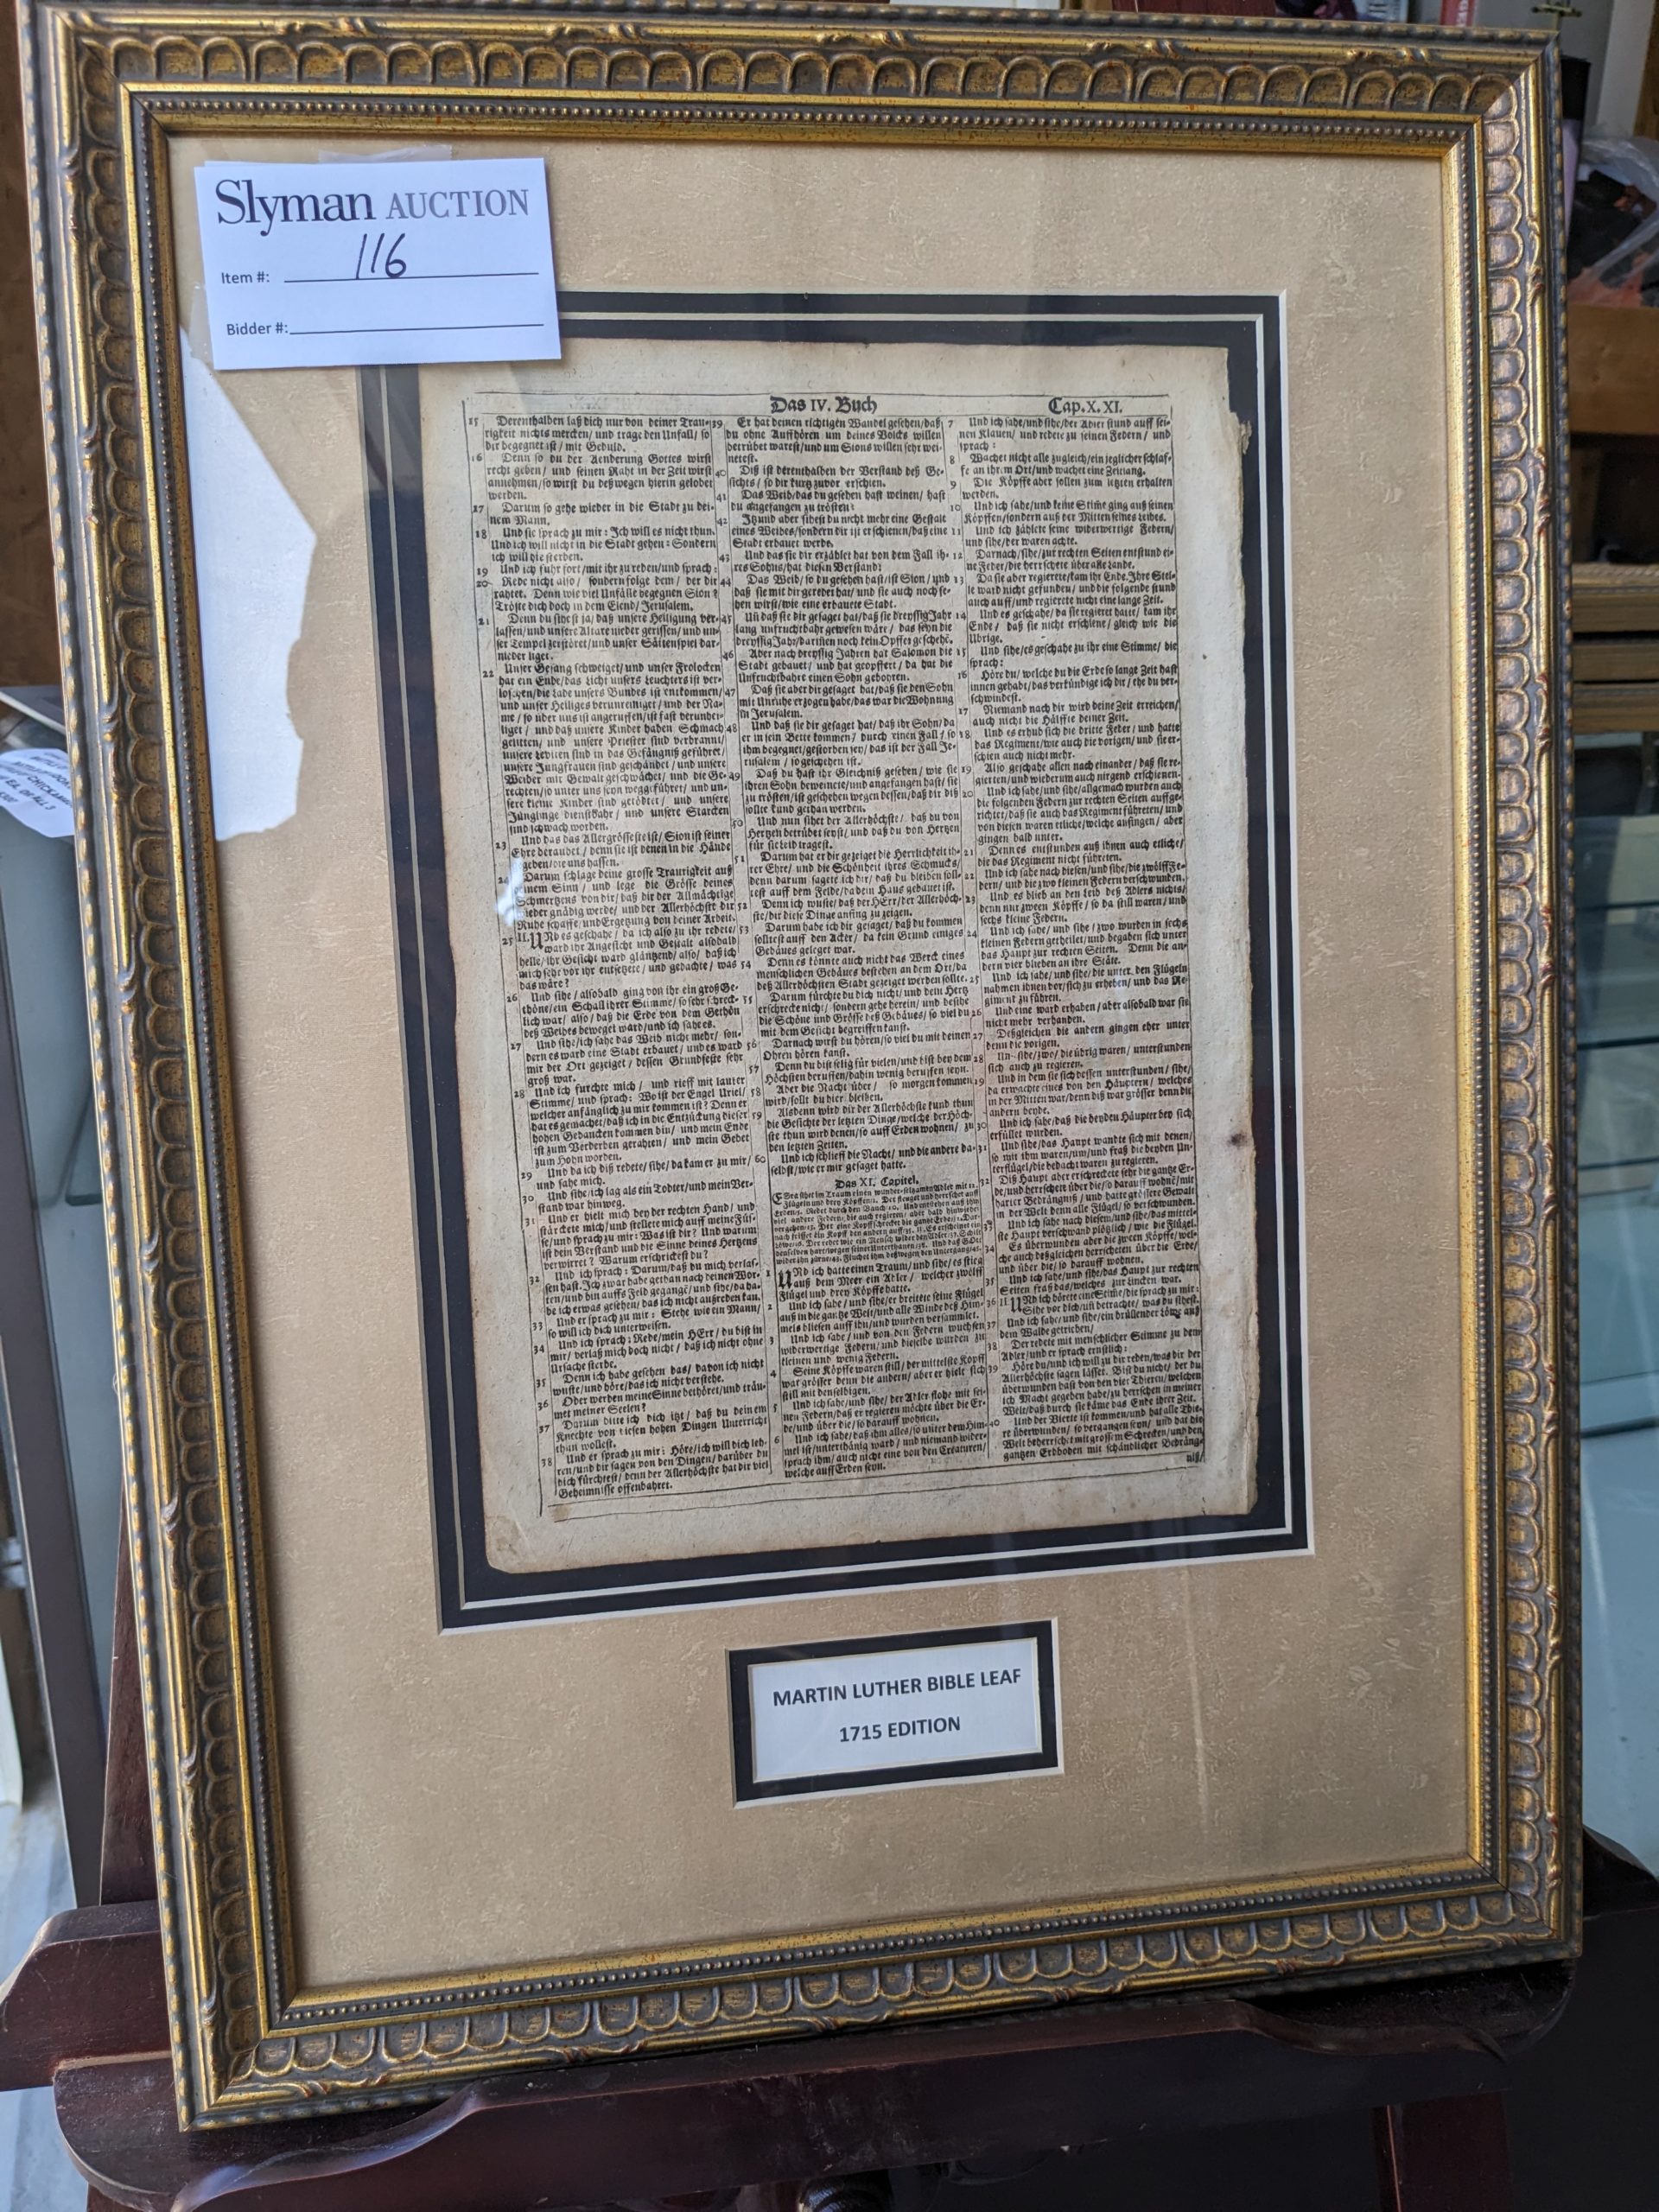 Slyman AUCTION
Item #: 116
Bidder #:
Das IV. Buch
Cap. X. XI.
15 Derenthalben laß dich nur von deiner Trau-
rigkeit nichts mercken/ und trage den Unfall/ so
dir begegnet ist/ mit Geduld.
16 Denn so du der Aenderung Gottes wirst
recht geben/ und seinen Raht in der Zeit wirst
annehmen/ so wirst du deßwegen hierin gelobet
werden.
17 Darum so gehe wieder in die Stadt zu dei-
nem Mann.
18 Und sie sprach zu mir: Ich will es nicht thun.
Und ich will nicht in die Stadt gehen: Sondern
ich will hie sterben.
19 Und ich fuhr fort/ mit ihr zu reden/ und sprach:
20 Rede nicht also/ sondern folge dem/ der dir
rahtet. Denn wie viel Unfälle begegnen Sion?
Tröste dich doch in dem Elend/ Jerusalem.
21 Denn du sihest ja/ daß unsere Heiligung ver-
lassen/ und unsere Altare nieder gerissen/ und un-
ser Tempel zerstöret/ und unser Säitenspiel dar-
nieder liget.
22 Unser Gesang schweiget/ und unser Frolocken
hat ein Ende/ das Licht unsers Leuchters ist ver-
loschen/ die Lade unsers Bundes ist entkommen/
und unser Heiliges verunreiniget/ und der Na-
me/ so über uns ist angeruffen/ ist fast verunhei-
liget/ und daß unsere Kinder haben Schmach
gelitten/ und unsere Priester sind verbrannt/
unsere Leviten sind in das Gefängniß geführet/
unsere Jungfrauen sind geschändet/ und unsere
Weiber mit Gewalt geschwächet/ und die Ge-
rechten/ so unter uns weggeführet/ und un-
sere kleine Kinder sind getödtet/ und unsere
Jünglinge dienstbahr/ und unsere Starcken
sind schwach worden.
23 Und das das Allergrösseste ist/ Sion ist seiner
Ehre beraubet/ denn sie ist denen in die Hände
geben/ die uns hassen.
24 Darum schlage deine grosse Traurigkeit auß
deinem Sinn/ und lege die Grösse deines
Schmertzens von dir/ daß dir der Allmächtige
wieder gnädig werde/ und der Allerhöchste dir
Ruhe schaffe/ und Ergetzung von deiner Arbeit.
25 II. UNd es geschahe/ da ich also zu ihr redete/
ward ihr Angesicht und Gestalt alsobald
helle/ ihr Gesicht ward gläntzend/ also/ daß ich
mich sehr vor ihr entsetzete/ und gedachte/ was
das wäre?
26 Und sihe/ alsobald ging von ihr ein groß Ge-
thöne/ ein Schall ihrer Stimme/ so sehr schreck-
lich war/ also/ daß die Erde von dem Gethön
deß Weibes beweget ward/ und ich sahe es.
27 Und sihe/ ich sahe das Weib nicht mehr/ son-
dern es ward eine Stadt erbauet/ und es ward
mir der Ort gezeiget/ dessen Grundfeste sehr
groß war.
28 Und ich furchte mich/ und rieff mit lauter
Stimme/ und sprach: Wo ist der Engel Uriel/
welcher anfänglich zu mir kommen ist? Denn er
hat es gemachet/ daß ich in die Entzückung dieser
hohen Gedancken kommen bin/ und mein Ende
ist zum Verderben gerahten/ und mein Gebet
zum Hohn worden.
29 Und da ich diß redete/ sihe/ da kam er zu mir/
und sahe mich.
30 Und sihe/ ich lag als ein Todter/ und mein Ver-
stand war hinweg.
31 Und er hielt mich bey der rechten Hand/ und
stärckete mich/ und stellete mich auff meine Füs-
se/ und sprach zu mir: Was ist dir? Und warum
ist dein Verstand und die Sinne deines Hertzens
verwirret? Warum erschrickest du?
32 Und ich sprach: Darum/ daß du mich verlas-
sen hast. Ich zwar habe gethan nach deinen Wor-
ten/ und bin auffs Feld gegangen/ und sihe/ da ha-
be ich etwas gesehen/ das ich nicht außreden kan.
33 Und er sprach zu mir: Stehe wie ein Mann/
so will ich dich unterweisen.
34 Und ich sprach: Rede/ mein HErr/ du bist in
mir/ verlaß mich doch nicht/ daß ich nicht ohne
Ursache sterbe.
35 Denn ich habe gesehen das/ davon ich nicht
wuste/ und höre/ das ich nicht verstehe.
36 Oder werden meine Sinne bethöret/ und träu-
met meiner Seelen?
37 Darum bitte ich dich itzt/ daß du deinem
Knechte von diesen hohen Dingen Unterricht
thun wollest.
38 Und er sprach zu mir: Höre/ ich will dich leh-
ren/ und dir sagen von den Dingen/ darüber du
dich fürchtest/ denn der Allerhöchste hat dir viel
Geheimnisse offenbahret.
39 Er hat deinen richtigen Wandel gesehen/ daß
du ohne Auffhören um deines Volcks willen
betrübet warest/ und um Sions willen sehr wei-
netest.
40 Diß ist derenthalben der Verstand deß Ge-
sichtes/ so dir kurtz zuvor erschien.
41 Das Weib/ das du gesehen hast weinen/ hast
du angefangen zu trösten:
42 Itzund aber sihest du nicht mehr eine Gestalt
eines Weibes/ sondern dir ist erschienen/ daß eine
Stadt erbauet werde.
43 Und das sie dir erzählet hat von dem Fall ih-
res Sohns/ hat diesen Verstand:
44 Das Weib/ so du gesehen hast/ ist Sion/ und
daß sie mit dir geredet hat/ und sie auch noch se-
hen wirst/ wie eine erbauete Stadt.
45 Un daß sie dir gesaget hat/ daß sie dreyssig Jahr
lang unfruchtbahr gewesen wäre/ das seyn die
dreyssig Jahr/ darinnen noch kein Opffer geschehe.
46 Aber nach dreyssig Jahren hat Salomon die
Stadt gebauet/ und hat geopffert/ da hat die
Unfruchtbahre einen Sohn gebohren.
47 Daß sie aber dir gesaget hat/ daß sie den Sohn
mit Unruhe erzogen habe/ das war die Wohnung
in Jerusalem.
48 Und daß sie dir gesaget hat/ daß ihr Sohn/ da
er in sein Bette kommen/ durch einen Fall/ so
ihm begegnet/ gestorben sey/ das ist der Fall Je-
rusalem/ so geschehen ist.
49 Daß du hast ihr Gleichniß gesehen/ wie sie
ihren Sohn beweinete/ und angefangen hast/ sie
zu trösten/ ist geschehen wegen dessen/ daß dir diß
sollet kund gethan werden.
50 Und nun sihet der Allerhöchste/ daß du von
Hertzen betrübet seyst/ und daß du von Hertzen
für sie leid tragest.
51 Darum hat er dir gezeiget die Herrlichkeit ih-
rer Ehre/ und die Schönheit ihres Schmucks/
denn darum sagete ich dir/ daß du bleiben soll-
test auff dem Felde/ da kein Haus gebauet ist.
52 Denn ich wuste/ daß der HErr/ der Allerhöch-
ste/ dir diese Dinge anfing zu zeigen.
53 Darum habe ich dir gesaget/ daß du kommen
solltest auff den Acker/ da kein Grund einiges
Gebäues geleget war.
54 Denn es könnte auch nicht das Werck eines
menschlichen Gebäues bestehen an dem Ort/ da
deß Allerhöchsten Stadt gezeiget werden sollte.
55 Darum fürchte du dich nicht/ und dein Hertz
erschrecke nicht/ sondern gehe herein/ und besihe
die Schöne und Grösse deß Gebäues/ so viel du
mit dem Gesicht begreiffen kanst.
56 Darnach wirst du hören/ so viel du mit deinen
Ohren hören kanst.
57 Denn du bist selig für vielen/ und bist bey dem
Höchsten beruffen/ dahin wenig beruffen seyn.
58 Aber die Nacht über/ so morgen kommen
wird/ sollt du hier bleiben.
59 Alsdenn wird dir der Allerhöchste kund thun
die Gesichte der letzten Dinge/ welche der Höch-
ste thun wird denen/ so auff Erden wohnen/ zu
den letzten Zeiten.
60 Und ich schlieff die Nacht/ und die andere da-
selbst/ wie er mir gesaget hatte.
Das XI. Capitel.
1 UNd ich hatte einen Traum/ und sihe/ es stieg
auß dem Meer ein Adler/ welcher zwölff
Flügel und drey Köpffe hatte.
2 Und ich sahe/ und sihe/ er breitete seine Flügel
auß in die gantze Welt/ und alle Winde deß Him-
mels bliesen auff ihn/ und wurden versammlet.
3 Und ich sahe/ und von den Federn wuchsen
widerwertige Federn/ und dieselbe wurden zu
kleinen und wenig Federn.
4 Seine Köpffe waren still/ der mittelste Kopff
war grösser denn die andern/ aber er hielt sich
still mit denselbigen.
5 Und ich sahe/ und sihe/ der Adler flohe mit sei-
nen Federn/ daß er regieren möchte über die Er-
de/ und über die/ so darauff wohnen.
6 Und ich sahe/ daß ihm alles/ so unter dem Him-
mel ist/ unterthänig ward/ und niemand wider-
sprach ihm/ auch nicht eine von den Creaturen/
welche auff Erden seyn.
7 Und ich sahe/ und sihe/ der Adler stund auff sei-
nen Klauen/ und redete zu seinen Federn/ und
sprach:
8 Wachet nicht alle zugleich/ ein jeglicher schlaf-
fe an ihrem Ort/ und wachet eine Zeitlang.
9 Die Köpffe aber sollen zum letzten erhalten
werden.
10 Und ich sahe/ und keine Stime ging auß seinen
Köpffen/ sondern auß der Mitten seines Leibes.
11 Und ich zählete seine widerwertige Federn/
und sihe/ der waren achte.
12 Darnach/ sihe/ zur rechten Seiten entstund ei-
ne Feder/ die herrschete über alle Lande.
13 Da sie aber regierete/ kam ihr Ende. Ihre Stel-
le ward nicht gefunden/ und die folgende stund
auch auff/ und regierete nicht eine lange Zeit.
14 Und es geschahe/ da sie regieret hatte/ kam ihr
Ende/ daß sie nicht erschiene/ gleich wie die
Übrige.
15 Und sihe/ es geschahe zu ihr eine Stimme/ die
sprach:
16 Höre du/ welche du die Erde so lange Zeit hast
innen gehabt/ das verkündige ich dir/ ehe du ver-
schwindest.
17 Niemand nach dir wird deine Zeit erreichen/
auch nicht die Hälffte deiner Zeit.
18 Und es erhub sich die dritte Feder/ und hatte
das Regiment/ wie auch die vorigen/ und sie er-
schien auch nicht mehr.
19 Also geschahe allen nach einander/ daß sie re-
gierten/ und wiederum auch nirgend erschienen.
20 Und ich sahe/ und sihe/ allgemach wurden auch
die folgenden Federn zur rechten Seiten auffge-
richtet/ daß sie auch das Regiment führeten/ und
von diesen waren etliche/ welche anfingen/ aber
gingen bald unter.
21 Denn es entstunden auß ihnen auch etliche/
die das Regiment nicht führten.
22 Und ich sahe nach diesen/ und sihe/ die zwölff Fe-
dern/ und die zwo kleinen Federn verschwunden.
23 Und es blieb an den Leib deß Adlers nichts/
denn nur zween Köpffe/ so da still waren/ und
sechs kleine Federn.
24 Und ich sahe/ und sihe/ zwo wurden in sechs
kleinen Federn getheilet/ und begaben sich unter
das Haupt zur rechten Seiten. Denn die an-
dern vier blieben an ihre Stäte.
25 Und ich sahe/ und sihe/ die unter den Flügeln
nahmen ihnen vor/ sich zu erheben/ und das Re-
giment zu führen.
26 Und eine ward erhaben/ aber alsobald war sie
nicht mehr verhanden.
27 Deßgleichen die andern gingen eher unter
denn die vorigen.
28 Un sihe/ zwo/ die übrig waren/ unterstunden
sich auch zu regieren.
29 Und in dem sie sich dessen unterstunden/ sihe/
da erwachte eines von den Häuptern/ welches
in der Mitten war/ denn diß war grösser denn die
andern beyde.
30 Und ich sahe/ daß die beyden Häupter bey sich
erfüllet wurden.
31 Und sihe/ das Haupt wandte sich mit denen/
so mit ihm waren/ um/ und fraß die beyden Un-
terflügel/ die bedacht waren zu regieren.
32 Diß Haupt aber erschreckete sehr die gantze Er-
de/ und herrschete über die/ so darauff wohnen/ mit
harter Bedrängniß/ und hatte grössere Gewalt
in der Welt denn alle Flügel/ so verschwunden.
33 Und ich sahe nach diesem/ und sihe/ das mittel-
ste Haupt verschwand plötzlich/ wie die Flügel.
34 Es überwunden aber die zween Köpffe/ wel-
che auch deßgleichen herrscheten über die Erde/
und über die/ so darauff wohnen.
35 Und ich sahe/ und sihe/ das Haupt zur rechten
Seiten fraß das/ welches zur Lincken war.
36 II. UNd ich hörete eine Stime/ die sprach zu mir:
Sihe vor dich/ un betrachte/ was du sihest.
37 Und ich sahe/ und sihe/ ein brüllender Löwe auß
dem Walde getrieben/
38 Der redete mit menschlicher Stimme zu dem
Adler/ und er sprach ernstlich:
39 Höre du/ und ich will zu dir reden/ was dir der
Allerhöchste sagen lässet. Bist du nicht/ der du
überwunden hast von den vier Thieren/ welchen
ich Macht gegeben habe/ zu herrschen in meiner
Welt/ daß durch sie käme das Ende ihrer Zeit.
40 Und der Vierte ist kommen/ und hat alle Thie-
re überwunden/ so vergangen seyn/ und hat die
Welt beherrschet mit grossem Schrecken/ und den
gantzen Erdboden mit schändlicher Bedräng-
niß/
MARTIN LUTHER BIBLE LEAF
1715 EDITION